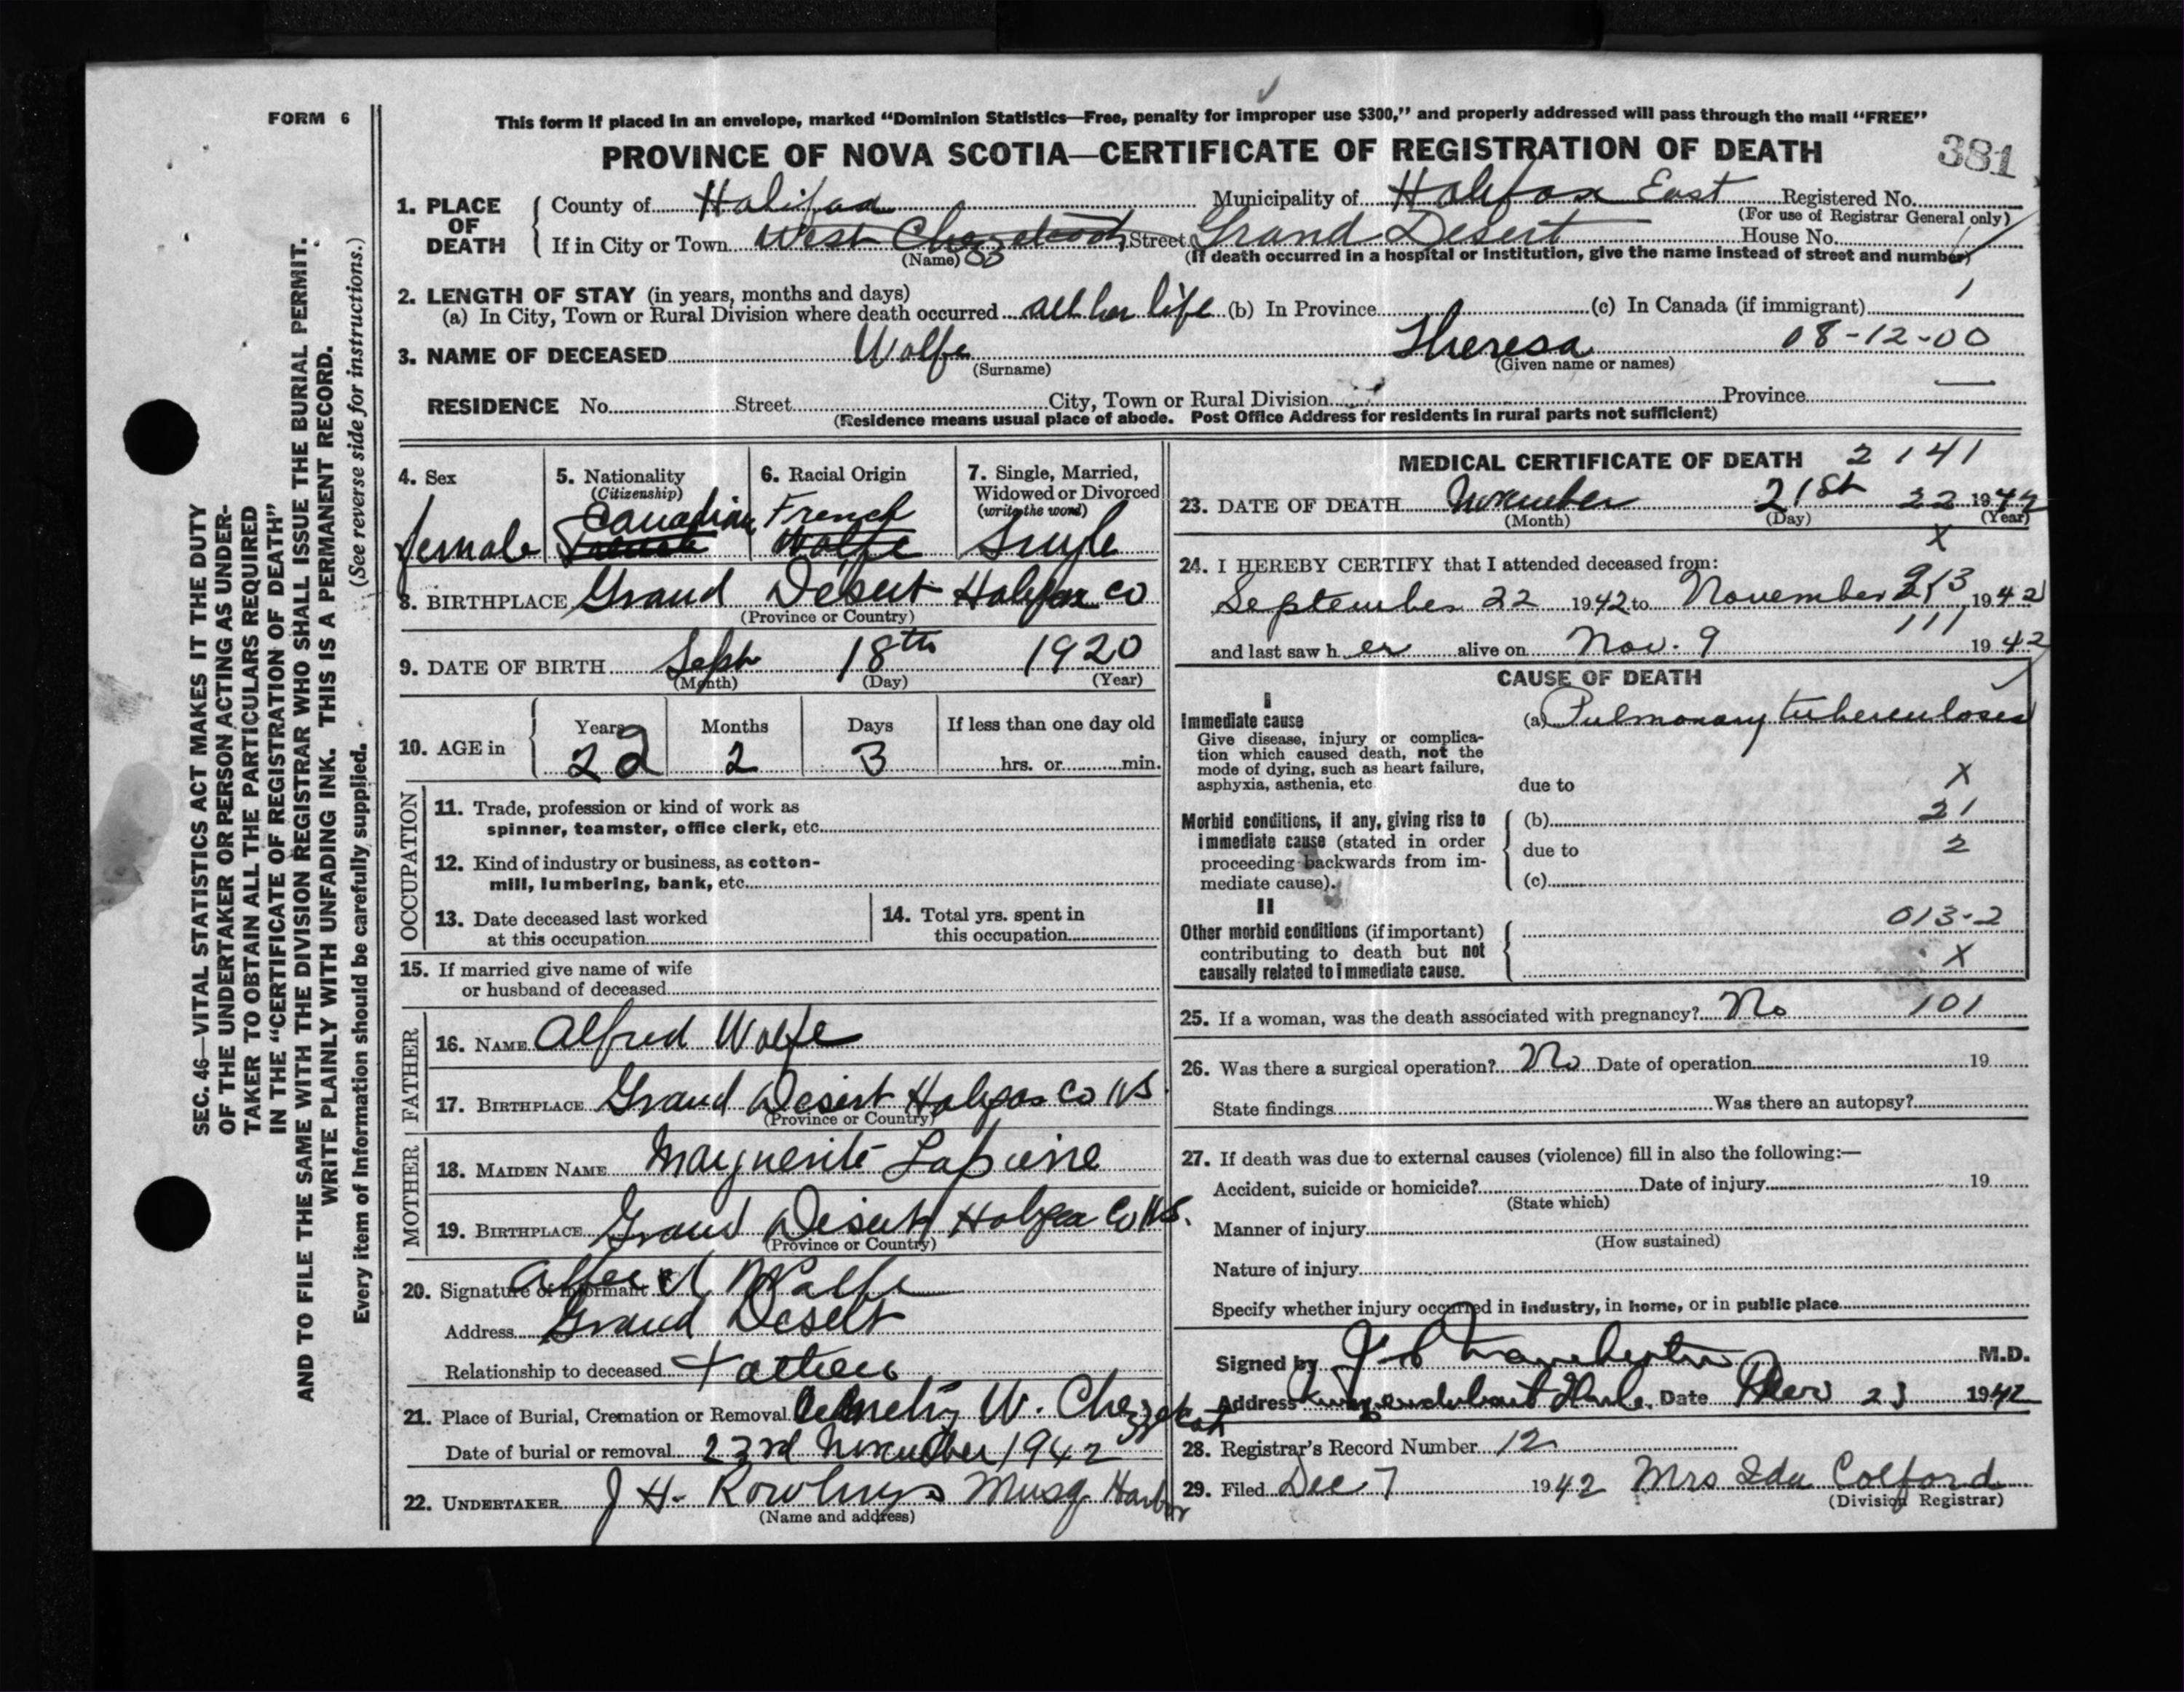 FORM 6
This form if placed in an envelope, marked "Dominion Statistics—Free, penalty for improper use $300," and properly addressed will pass through the mail "FREE"
PROVINCE OF NOVA SCOTIA—CERTIFICATE OF REGISTRATION OF DEATH
381
1. PLACE OF DEATH
County of Halifax Municipality of Halifax East Registered No.
(For use of Registrar General only)
If in City or Town West Chezzetcook Street Grand Desert House No.
(Name) (If death occurred in a hospital or institution, give the name instead of street and number)
2. LENGTH OF STAY (in years, months and days) 1
(a) In City, Town or Rural Division where death occurred all her life (b) In Province (c) In Canada (if immigrant)
3. NAME OF DECEASED Wolfe Theresa 08-12-00
(Surname) (Given name or names)
RESIDENCE No. Street City, Town or Rural Division Province
(Residence means usual place of abode. Post Office Address for residents in rural parts not sufficient)
4. Sex
female
5. Nationality
(Citizenship)
Canadian
6. Racial Origin
French
Wolfe
7. Single, Married,
Widowed or Divorced
(write the word)
Single
8. BIRTHPLACE Grand Desert Halifax Co
(Province or Country)
9. DATE OF BIRTH Sept 18th 1920
(Month) (Day) (Year)
10. AGE in
Years Months Days If less than one day old
22 2 3 hrs. or min.
OCCUPATION
11. Trade, profession or kind of work as
spinner, teamster, office clerk, etc.
12. Kind of industry or business, as cotton-
mill, lumbering, bank, etc.
13. Date deceased last worked
at this occupation
14. Total yrs. spent in
this occupation
15. If married give name of wife
or husband of deceased
FATHER
16. NAME Alfred Wolfe
17. BIRTHPLACE Grand Desert Halifax Co NS
(Province or Country)
MOTHER
18. MAIDEN NAME Marguerite Lapierre
19. BIRTHPLACE Grand Desert Halifax Co NS.
(Province or Country)
20. Signature of Informant Alfred Wolfe
Address Grand Desert
Relationship to deceased Father
21. Place of Burial, Cremation or Removal W. Chezzetcook
Date of burial or removal 23rd November 1942
22. UNDERTAKER J H. Rowlings Musq Harbor
(Name and address)
MEDICAL CERTIFICATE OF DEATH 2141
23. DATE OF DEATH November 21st 22 1942
(Month) (Day) (Year)
X
24. I HEREBY CERTIFY that I attended deceased from:
September 22 1942 to November 1942
111
and last saw her alive on Nov. 9 1942
CAUSE OF DEATH
I
Immediate cause
Give disease, injury or complica-
tion which caused death, not the
mode of dying, such as heart failure,
asphyxia, asthenia, etc
(a) Pulmonary tuberculosis
due to X
Morbid conditions, if any, giving rise to
immediate cause (stated in order
proceeding backwards from im-
mediate cause).
(b) 21
due to 2
(c)
II
Other morbid conditions (if important)
contributing to death but not
causally related to immediate cause.
013-2
X
25. If a woman, was the death associated with pregnancy? No 101
26. Was there a surgical operation? No Date of operation 19
State findings Was there an autopsy?
27. If death was due to external causes (violence) fill in also the following:—
Accident, suicide or homicide? Date of injury 19
(State which)
Manner of injury
(How sustained)
Nature of injury
Specify whether injury occurred in industry, in home, or in public place
Signed by M.D.
Address Date 23 1942
28. Registrar's Record Number 12
29. Filed Dec 7 1942 Mrs Ida Colford
(Division Registrar)
SEC. 46—VITAL STATISTICS ACT MAKES IT THE DUTY
OF THE UNDERTAKER OR PERSON ACTING AS UNDER-
TAKER TO OBTAIN ALL THE PARTICULARS REQUIRED
IN THE "CERTIFICATE OF REGISTRATION OF DEATH"
AND TO FILE THE SAME WITH THE DIVISION REGISTRAR WHO SHALL ISSUE THE BURIAL PERMIT.
WRITE PLAINLY WITH UNFADING INK. THIS IS A PERMANENT RECORD.
Every item of information should be carefully supplied. (See reverse side for instructions.)